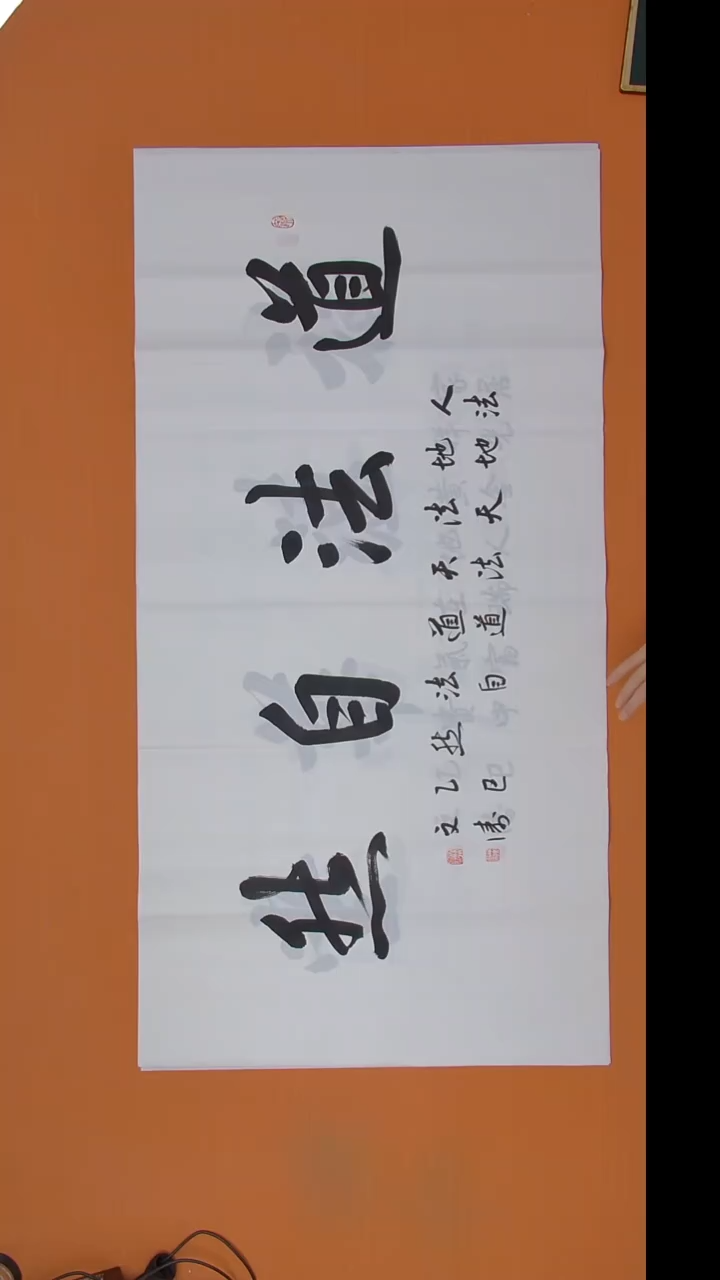 道法自然
人法
地地
法天
天法
道道
法自
然
乙巳
文涛